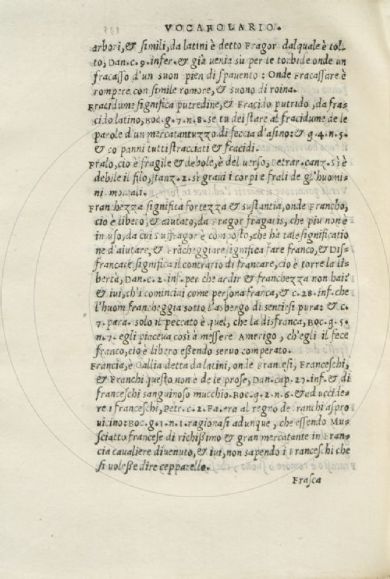 VOCABOLARIO.
arbori, & simili, da latini è detto Fragor dal quale è tol-
to, Dan. c. 9. infer. & già venia su per le torbide onde un
fracasso d'un suon pien di spauento: Onde Fracassare è
rompere con simile romore, & suono di roina.
Fracidume significa putredine, & Fracido putrido, da fra-
cido latino, Boc. g. 7. n. 8. se tu dei stare al fracidume de le
parole d'un mercatantuzzo di feccia d'asino: & g. 4. n. 5.
& co panni tutti stracciati & fracidi.
Fralo, cio è fragile & debole, è del verso, Petrar. canz. Sì è
debile il filo, stanz. 2. sì graui i corpi e frali de gl'huomi-
ni mortali.
Franchezza significa fortezza & sustantia, onde Francho,
cio è libero, & aiutato, da Fragor fragaris, che piu non è
in uso, da cui suffragor è composto, che ha tale significatio
ne d'aiutare, & Frācheggiare significa fare franco, & Dis-
francare significa il contrario di francare, cio è torre la li-
bertà, Dan. c. 2. inf. per che ardir & franchezza non hai?
& iui, ch'i cominciai come persona franca, & c. 28. inf. che
l'huom francheggia sotto l'asbergo di sentirsi pura: & c.
7. para. solo il peccato è quel, che la disfranca, Boc. g. 5.
n. 7. egli piaceua così à messere Amerigo, ch'egli il fece
franco, cio è libero essendo seruo comperato.
Francia, è Gallia detta da latini, onde Francesi, Franceschi,
& Franchi questo non è de le prose, Dan. cap. 27. inf. & di
franceschi sanguinoso mucchio. Boc. g. 2. n. 6. & ad uccide-
re i franceschi, Petr. c. 2. Fa. era al regno de franchi aspro
uicino: Boc. g. 1. n. 1. ragionasi adunque, che essendo Mus-
sciatto francese di richissimo & gran mercatante in Fran-
cia caualiere diuenuto, & iui, non sapendo i Franceschi che
si volesse dire cepparello.
Frasca